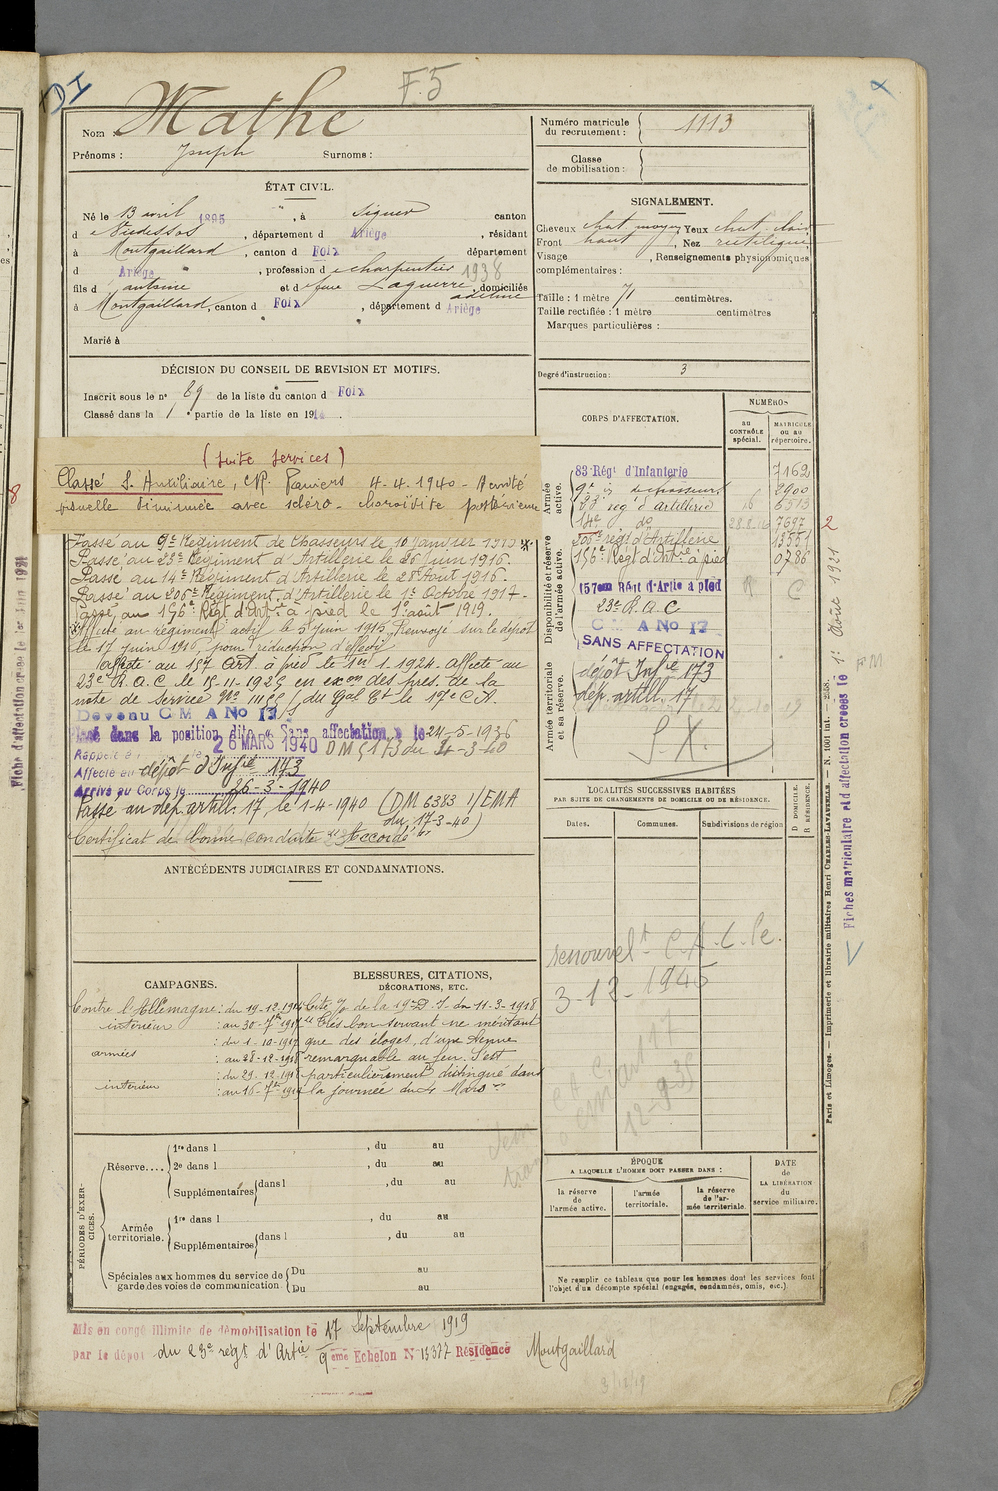 F.5
Nom : Mathe
Prénoms : Joseph Surnoms :
Numéro matricule du recrutement : 1113
Classe de mobilisation :
ÉTAT CIVIL.
Né le 13 avril 1895, à Siguer canton
d Vicdessos, département d Ariège, résidant
à Montgaillard, canton d Foix département
d Ariège, profession d charpentier 1938
fils d antoine et d feue Laguerre adeline, domiciliés
à Montgaillard, canton d Foix, département d Ariège
Marié à
SIGNALEMENT.
Cheveux chat. moyen, Yeux chat. clair
Front haut, Nez rectiligne
Visage , Renseignements physiognomiques
complémentaires :
Taille : 1 mètre 71 centimètres.
Taille rectifiée : 1 mètre centimètres
Marques particulières :
Degré d'instruction : 3
DÉCISION DU CONSEIL DE REVISION ET MOTIFS.
Inscrit sous le n° 89 de la liste du canton d Foix
Classé dans la 1 e partie de la liste en 191
(suite services)
Classé S. Auxiliaire, CR. Pamiers 4-4-1940 - Acuité
visuelle diminuée avec scléro-choroïdite postérieure
Passé au 9e Régiment de Chasseurs le 10 Janvier 1915
Passé au 23e Régiment d'Artillerie le 26 Juin 1916.
Passé au 14e Régiment d'Artillerie le 28 Août 1916.
Passé au 206e Régiment d'Artillerie le 1er Octobre 1917.
Passé au 156e Régt d'Artie à pied le 1er août 1919.
Affecté au régiment actif le 5 juin 1915, Renvoyé sur le dépôt
le 17 juin 1916, pour réduction d'effectif
Affecté au 157 Art. à pied le 1er 1.1924. Affecté au
23e R.A.C le 15-11-1925 en exon des pres. de la
note de service No 11155/ du Gal Ct le 17e C.A.
Devenu C M A No 17
Placé dans la position dite « Sans affectation » le 24-5-1936
Rappelé à le 26 MARS 1940 DM
Affecté au dépôt d'Infie 173
Arrivé au Corps le 26-3-1940
Passe au dép. artill. 17, le 1-4-1940 (DM 6383 1/EMA
du 17-3-40)
Certificat de bonne conduite "Accordé"
CORPS D'AFFECTATION.
NUMÉROS
au CONTRÔLE spécial.
MATRICULE ou au répertoire.
Armée active.
83 Régt d'Infanterie 7162
9e de chasseurs 2900
23e rég d'artillerie 6513
14e do 28.8.16 7697
206e régt d'Artillerie 13551
156e Régt d'Artie à pied 0786
Disponibilité et réserve de l'armée active.
157em Régt d'Artie à pied
23e R.A.C
C M A No 17
SANS AFFECTATION
Armée territoriale et sa réserve.
dépôt Infie 173
dép. artill. 17
S.X.
LOCALITÉS SUCCESSIVES HABITÉES
PAR SUITE DE CHANGEMENTS DE DOMICILE OU DE RÉSIDENCE.
Dates. Communes. Subdivisions de région
D DOMICILE. R RÉSIDENCE.
renouvelt C.A.C. le
3-12-1945
12-9-35
ANTÉCÉDENTS JUDICIAIRES ET CONDAMNATIONS.
CAMPAGNES.
Contre l'Allemagne : du 19-12-1914
intérieur : au 30-7bre 1917
: du 1-10-1917
armées : au 28-12-1918
: du 29-12-1918
intérieur : au 16-7bre 1919
BLESSURES, CITATIONS,
DÉCORATIONS, ETC.
Cité, O/ de la 19e D.I. du 11-3-1918
"Très bon servant ne méritant
que des éloges, d'une tenue
remarquable au feu. S'est
particulièrement distingué dans
la journée du 4 Mars"
PÉRIODES D'EXERCICES.
Réserve....
1re dans l , du au
2e dans l , du au
Supplémentaires dans l , du au
Armée territoriale.
1re dans l , du au
Supplémentaires dans l , du au
Spéciales aux hommes du service de garde des voies de communication
Du au
Du au
ÉPOQUE
A LAQUELLE L'HOMME DOIT PASSER DANS :
la réserve de l'armée active.
l'armée territoriale.
la réserve de l'armée territoriale.
DATE DE LA LIBÉRATION du service militaire.
Ne remplir ce tableau que pour les hommes dont les services font
l'objet d'un décompte spécial (engagés, condamnés, omis, etc.).
Mis en congé illimité de démobilisation le 17 Septembre 1919
par le dépôt du 23e régt d'Artie 9eme Echelon No 13377 Résidence Montgaillard
3/12/19
Paris et Limoges. — Imprimerie et librairie militaires Henri CHARLES-LAVAUZELLE. — N. 1601 int. — 2858.
Fiches matriculaire et d'affectation créées le 1er Août 1931
FM